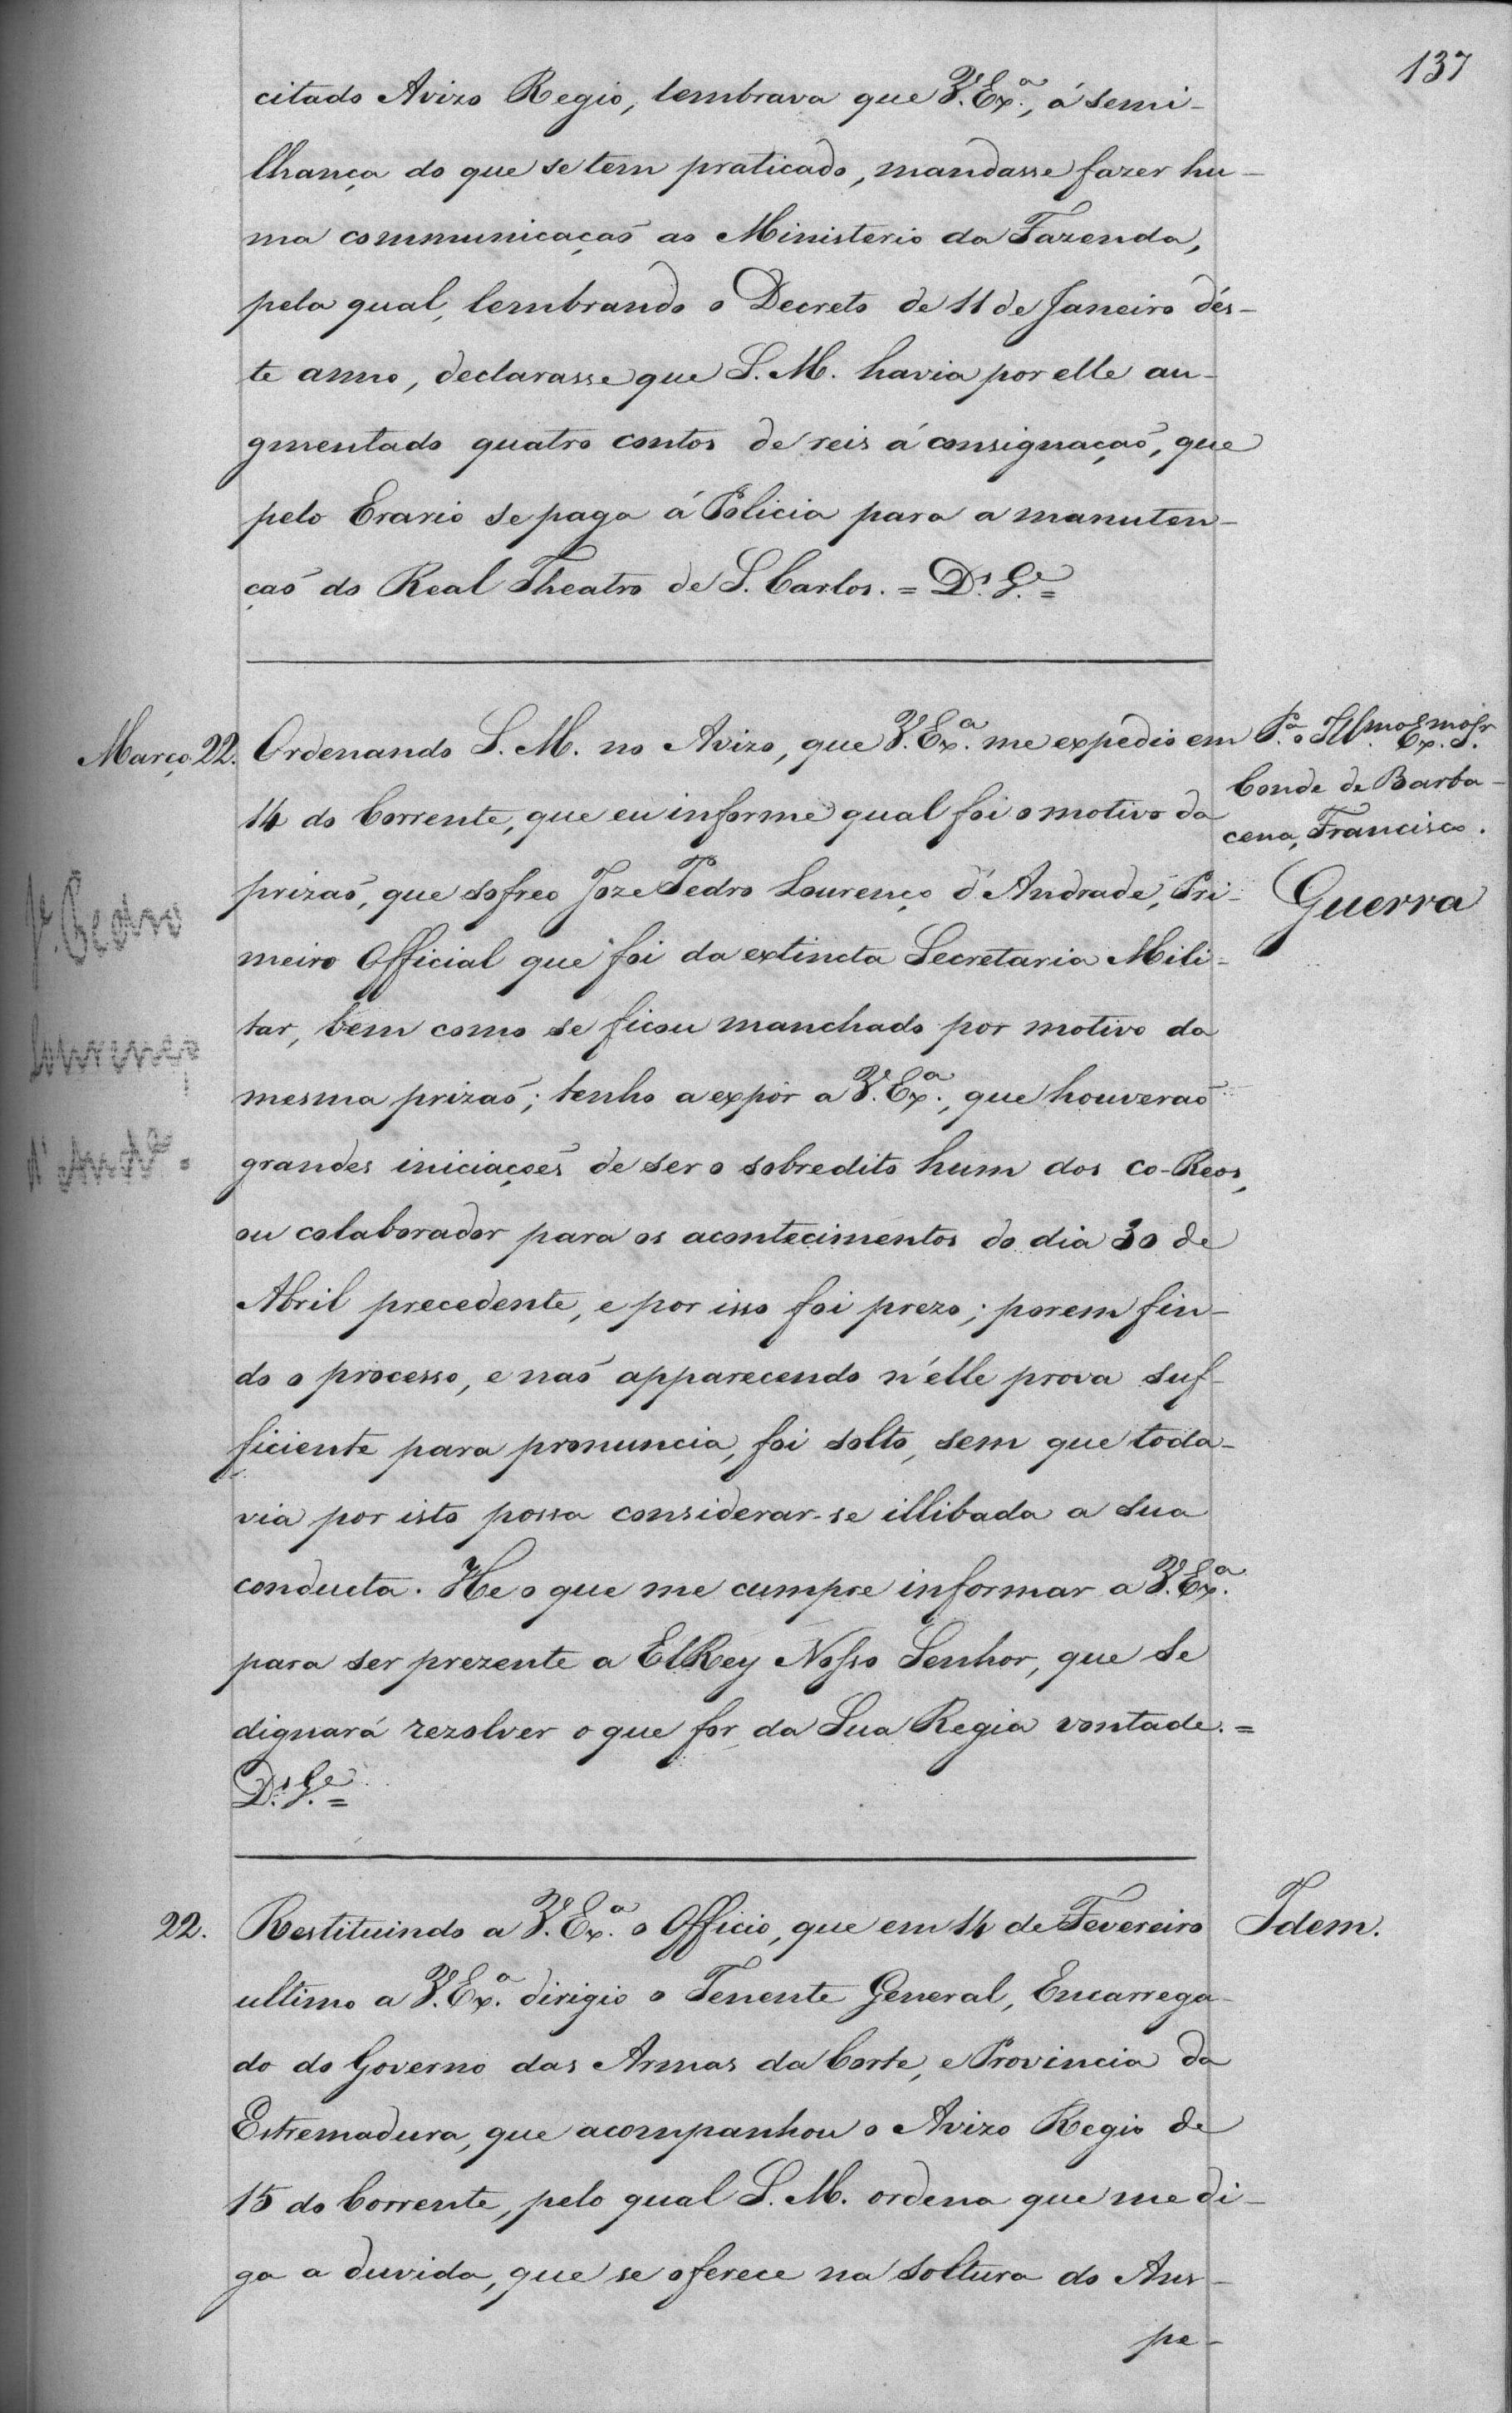 137
citado Avizo Regio, lembrava que V. Ex.ª, á semi-
lhança do que se tem praticado, mandasse fazer hu-
ma communicaçaõ ao Ministerio da Fazenda,
pela qual, lembrando o Decreto de 11 de Janeiro dés-
te anno, declarasse que S. M. havia por elle au-
gmentado quatro contos de reis á consignaçaõ, que
pelo Erario se paga á Policia para a manuten-
çaõ do Real Theatro de S. Carlos. = D.s G.e =
Março 22. Ordenando S. M. no Avizo, que V. Ex.ª me expedio em
14 do Corrente, que eu informe qual foi o motivo da
prizaõ, que sofreo Joze Pedro Lourenço d'Andrade, Pri-
meiro Official que foi da extincta Secretaria Mili-
tar, bem como se ficou manchado por motivo da
mesma prizaõ; tenho a expôr a V. Ex.ª, que houveraõ
grandes iniciaçoẽs de ser o sobredito hum dos co-Reos,
ou colaborador para os acontecimentos do dia 30 de
Abril precedente, e por isso foi prezo; porem fin-
do o processo, e naõ apparecendo n'élle prova suf-
ficiente para pronuncia, foi solto, sem que toda-
via por isto possa considerar-se illibada a sua
conducta. He o que me cumpre informar a V. Ex.ª
para ser prezente a ElRey Nosso Senhor, que se
dignará rezolver o que for da Sua Regia vontade. =
D.s G.e =
P.ª o Ill.mo Ex.mo Sr.
Conde de Barba-
cena, Francisco.
Guerra
J. Pedro
Lourenço
d'Andr.e
22. Restituindo a V. Ex.ª o Officio, que em 14 de Fevereiro
ultimo a V. Ex.ª dirigio o Tenente General, Encarrega-
do do Governo das Armas da Corte, e Provincia da
Estremadura, que acompanhou o Avizo Regio de
15 do Corrente, pelo qual S. M. ordena que me di-
ga a duvida, que se oferece na soltura do Ans-
pe-
Idem.